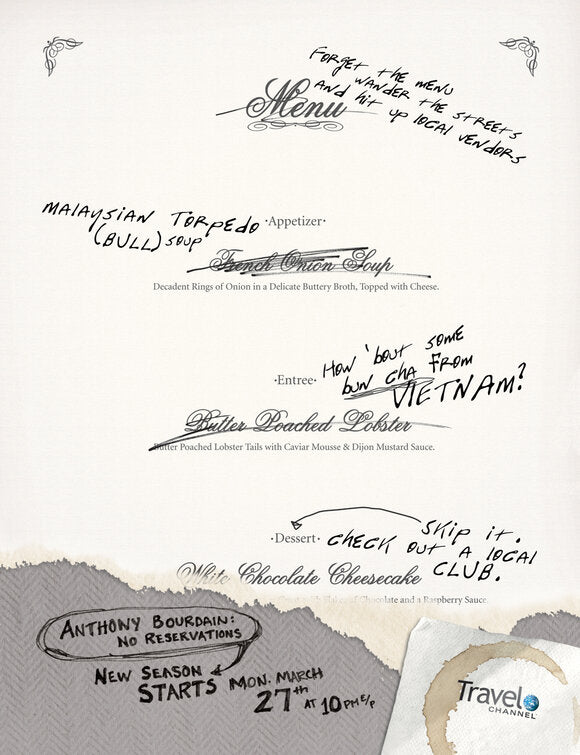 Forget the menu
wander the streets
and hit up local vendors
Menu
Malaysian Torpedo
(Bull) soup
·Appetizer·
French Onion Soup
Decadent Rings of Onion in a Delicate Buttery Broth, Topped with Cheese.
How 'bout some
bun cha from
Vietnam?
·Entree·
Butter Poached Lobster
Butter Poached Lobster Tails with Caviar Mousse & Dijon Mustard Sauce.
Skip it.
·Dessert· Check out a local
club.
White Chocolate Cheesecake
of Chocolate and a Raspberry Sauce
Anthony Bourdain:
No Reservations
New Season
Starts Mon. March
27th at 10 PM E/P
Travel
CHANNEL